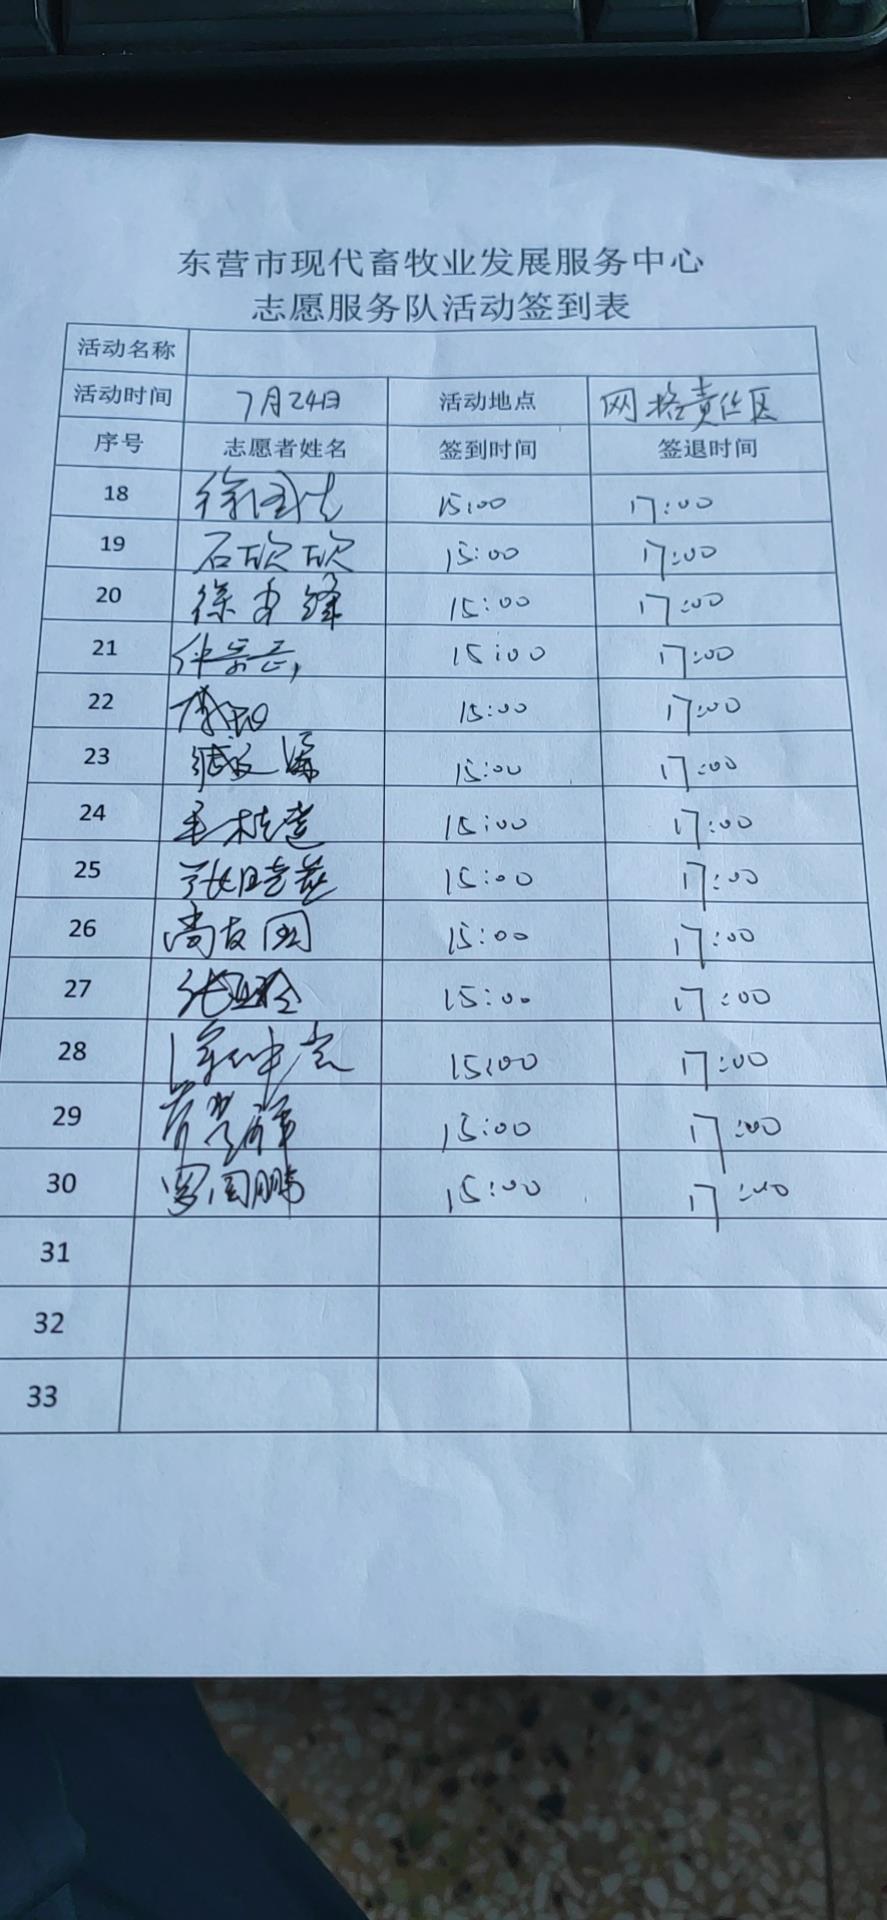 东营市现代畜牧业发展服务中心
志愿服务队活动签到表
活动名称
活动时间 7月24日 活动地点 网格责任区
序号 志愿者姓名 签到时间 签退时间
18 15:00 17:00
19 石欣欣 15:00 17:00
20 15:00 17:00
21 15:00 17:00
22 15:00 17:00
23 15:00 17:00
24 15:00 17:00
25 15:00 17:00
26 尚友国 15:00 17:00
27 15:00 17:00
28 15:00 17:00
29 15:00 17:00
30 罗国鹏 15:00 17:00
31
32
33